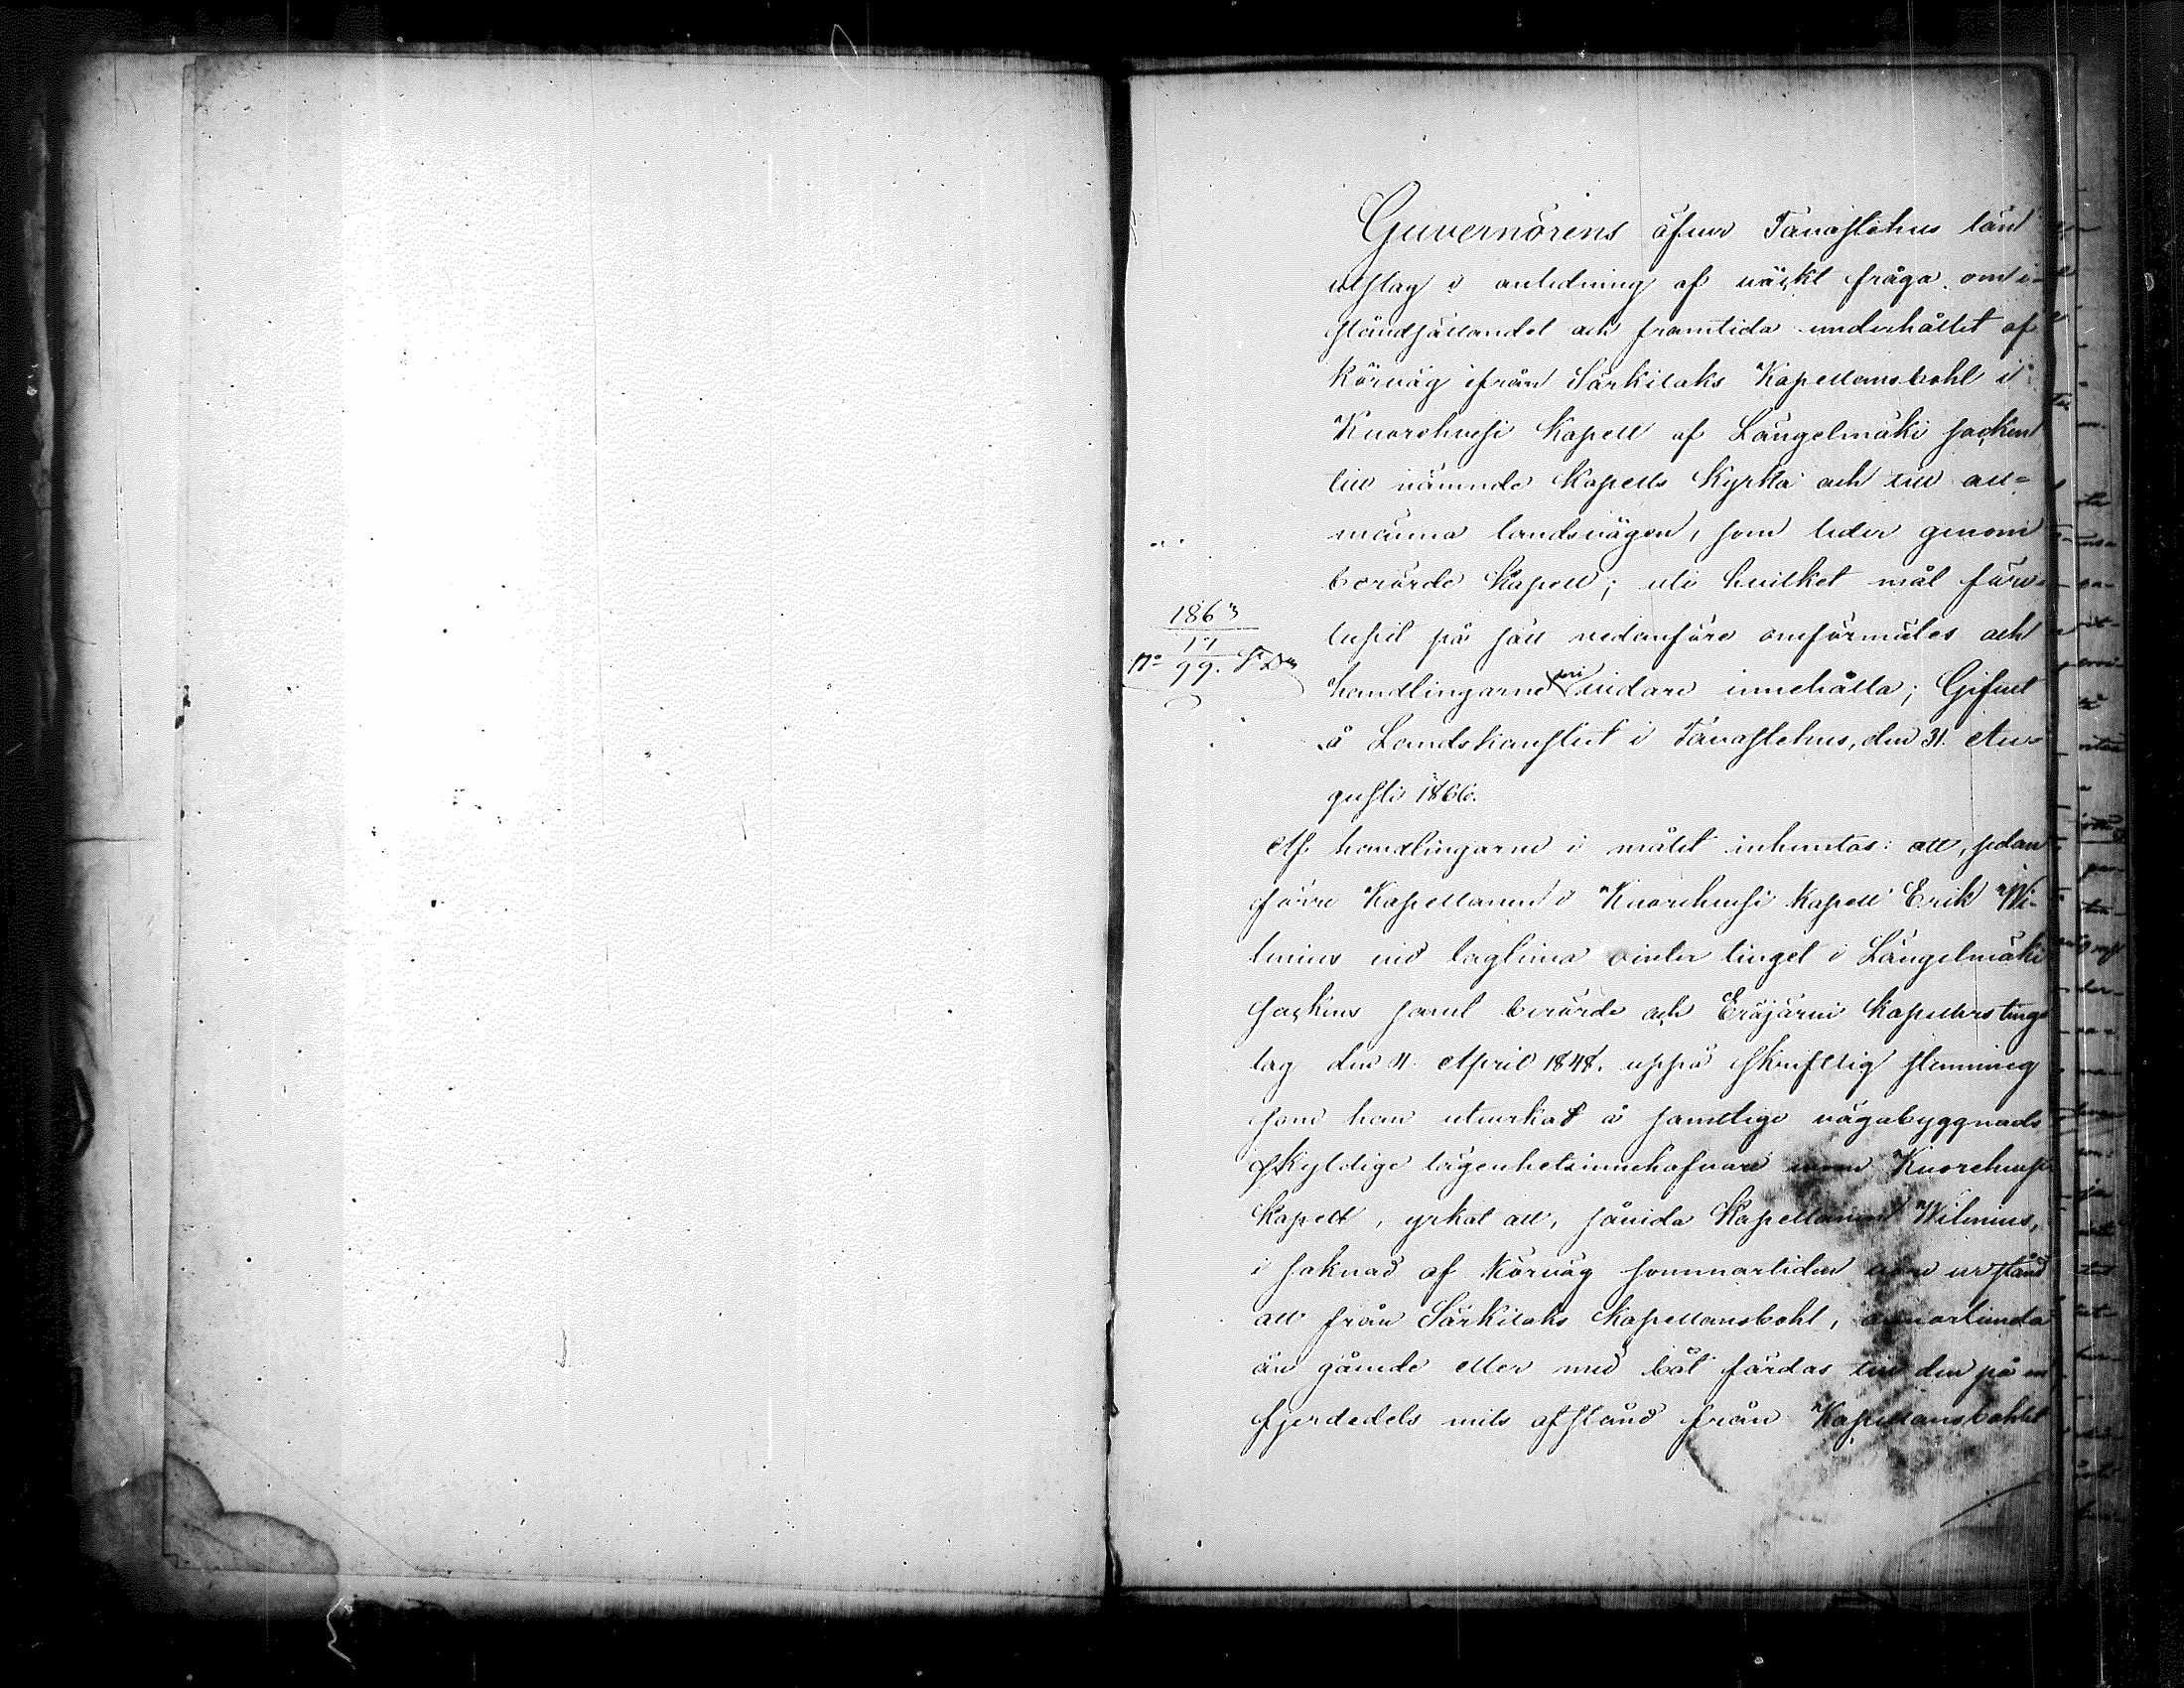 Guvernörens öfver Tavastehus län
utslag i anledning af väckt fråga om i-
ståndsättandet och framtida underhållet af
körväg ifrån Särkilaks Kapellansbohl i
Kuorehvesi Kapell af Längelmäki socken
till nämnde Kapells Kyrka och till all-
männa landsvägen, som leder genom
berörde Kapell; uti hvilket mål för-
lupit på sätt nedanföre omförmäles och
handlingarne vidare innehålla; Gifvet
å Landskansliet i Tavastehus, den 31. Au-
gusti 1866.
1863
17
No 99.
Af handlingarne i målet inhemtas: att, sedan
förre Kapellanen i Kuorehvesi Kapell Erik Wi-
lenius vid lagtima vinter tinget i Längelmäki
sockens samt berörde och Eräjärvi Kapellers tings
lag den 4. April 1848. uppå skriftlig stemning
som han utverkat å samtlige vägabyggnads
skyldige lägenhetsinnehafvare inom Kuorehvesi
Kapell, yrkat att, såvida Kapellanen Wilenius,
i saknad af körväg sommartiden vore urstånd
att från Särkilaks Kapellansbohl, annorlunda
än gående eller med båt färdas till den på en
fjerdedels mils afstånd från Kapellansbohlet